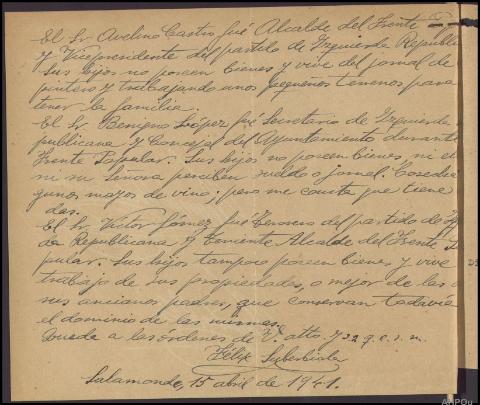 El Sr Avelino Castro fué Alcalde del Frente
y Vicepresidente del partido de Izquierda Republi
Sus hijos no poseen bienes y vive del jornal de
pintero y trabajando unos pequeños terrenos para
tener la familia.
El Sr Benigno López fué Secretario de Izquierda
publicana y Concejal del Ayuntamiento durante
Frente Popular. Sus hijos no poseen bienes, ni el
ni su señora perciben sueldo o jornal. Cosecha
gunos moyos de vino; pero me consta que tiene
das.
El Sr Victor Gómez fué Tesorero del partido de Iz
da Republicana y Teniente Alcalde del Frente
pular. Sus hijos tampoco poseen bienes y vive
trabajo de sus propiedades, o mejor de las
sus ancianos padres, que conservan todavía
el dominio de las mismas.
Queda a las órdenes de V. atto. y ss q. e. s. m.
Félix
Salamonde, 15 abril de 1941.